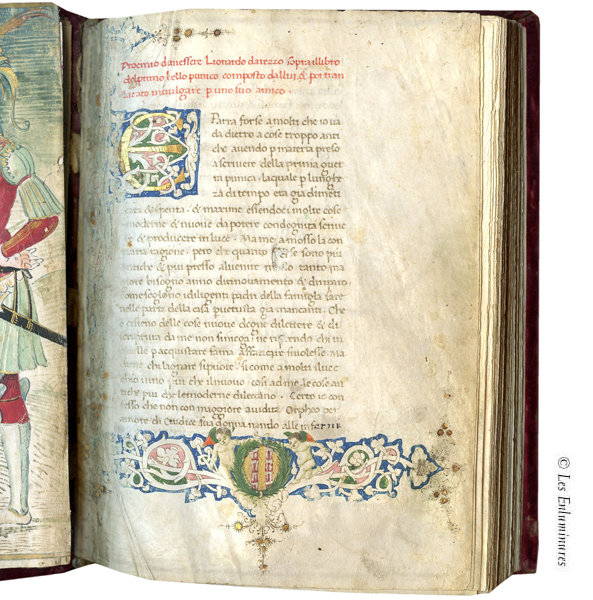 Proemio di messere Lionardo darezzo sopra illibro
del primo bello punico composto da llui. & poi tran
slatato in vulgare p uno suo amico.
Parra forse a molti che io va
da dietro a cose troppo anti
che avendo p materia preso
a scrivere della prima guer
ra punica. laquale p lunghe
za di tempo era gia dimeti
cata & spenta. & maxime essendoci molte cose
moderne & nuove da potere condegnita scrive
re & producere in luce. Ma me a mosso la con
traria ragione. pero che quanto se sono piu
antiche & piu presso alvenire tanto ma
iore bisogno anno di rinovamento & di riparo
come sogliono i diligenti padri della famiglia fare
nelle parti della casa p vetusta gia mancanti. Che
delle cose nuove degne di lettere & di
da me non si niega
Ma
a molti il
che le cose an
Certo io con
fesso che non con maggiore avidita Orpheo per
amore di Erudice sua donna nando alle inferni
© Les Enluminures